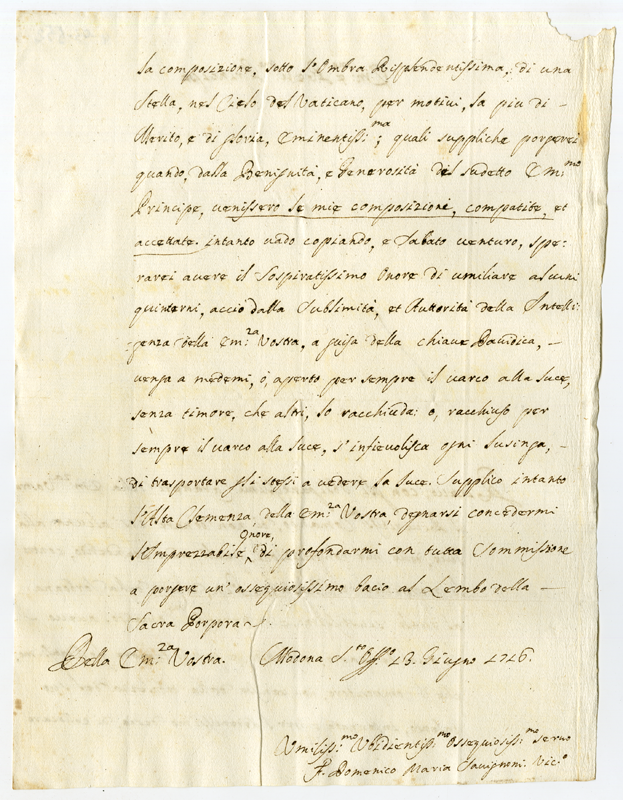 la composizione, sotto l'Ombra Risplendentissima, di una
Stella, nel Cielo del Vaticano, per motivi, la più di -
Merito, e di gloria, Eminentiss:ma; quali suppliche porgerei
quando, dalla Benignità, e Generosità del sudetto Emi:mo
Principe, venissero le mie composizioni, compatite, et
accettate. intanto vado copiando, e Sabato venturo, spe:
rarei avere il Sospiratissimo Onore di umiliare alcuni
quinterni, acciò dalla Sublimità, et Auttorità della Intelli:
genza della Em:za Vostra, a guisa della chiave Davidica, -
venga a medemi, ò, aperto per sempre il varco alla luce,
senza timore, che altri, lo racchiuda: o, racchiuso per
sempre il varco alla luce, s'infievolisca ogni lusinga, -
di trasportare gli stessi a vedere la luce. Supplico intanto
l'Alta Clemenza, della Em:za Vostra, degnarsi concedermi
l'Imprezzabile Onore, di profondarmi con tutta Sommissione
a porgere un'ossequiosissimo bacio al Lembo della -
Sacra Porpora
Della Em:za Vostra. Modona S.to Off.o 13. Giugno 1716.
Umiliss:mo Ubidientiss:mo Ossequiosiss:mo Servo
F. Domenico Maria Vic:o